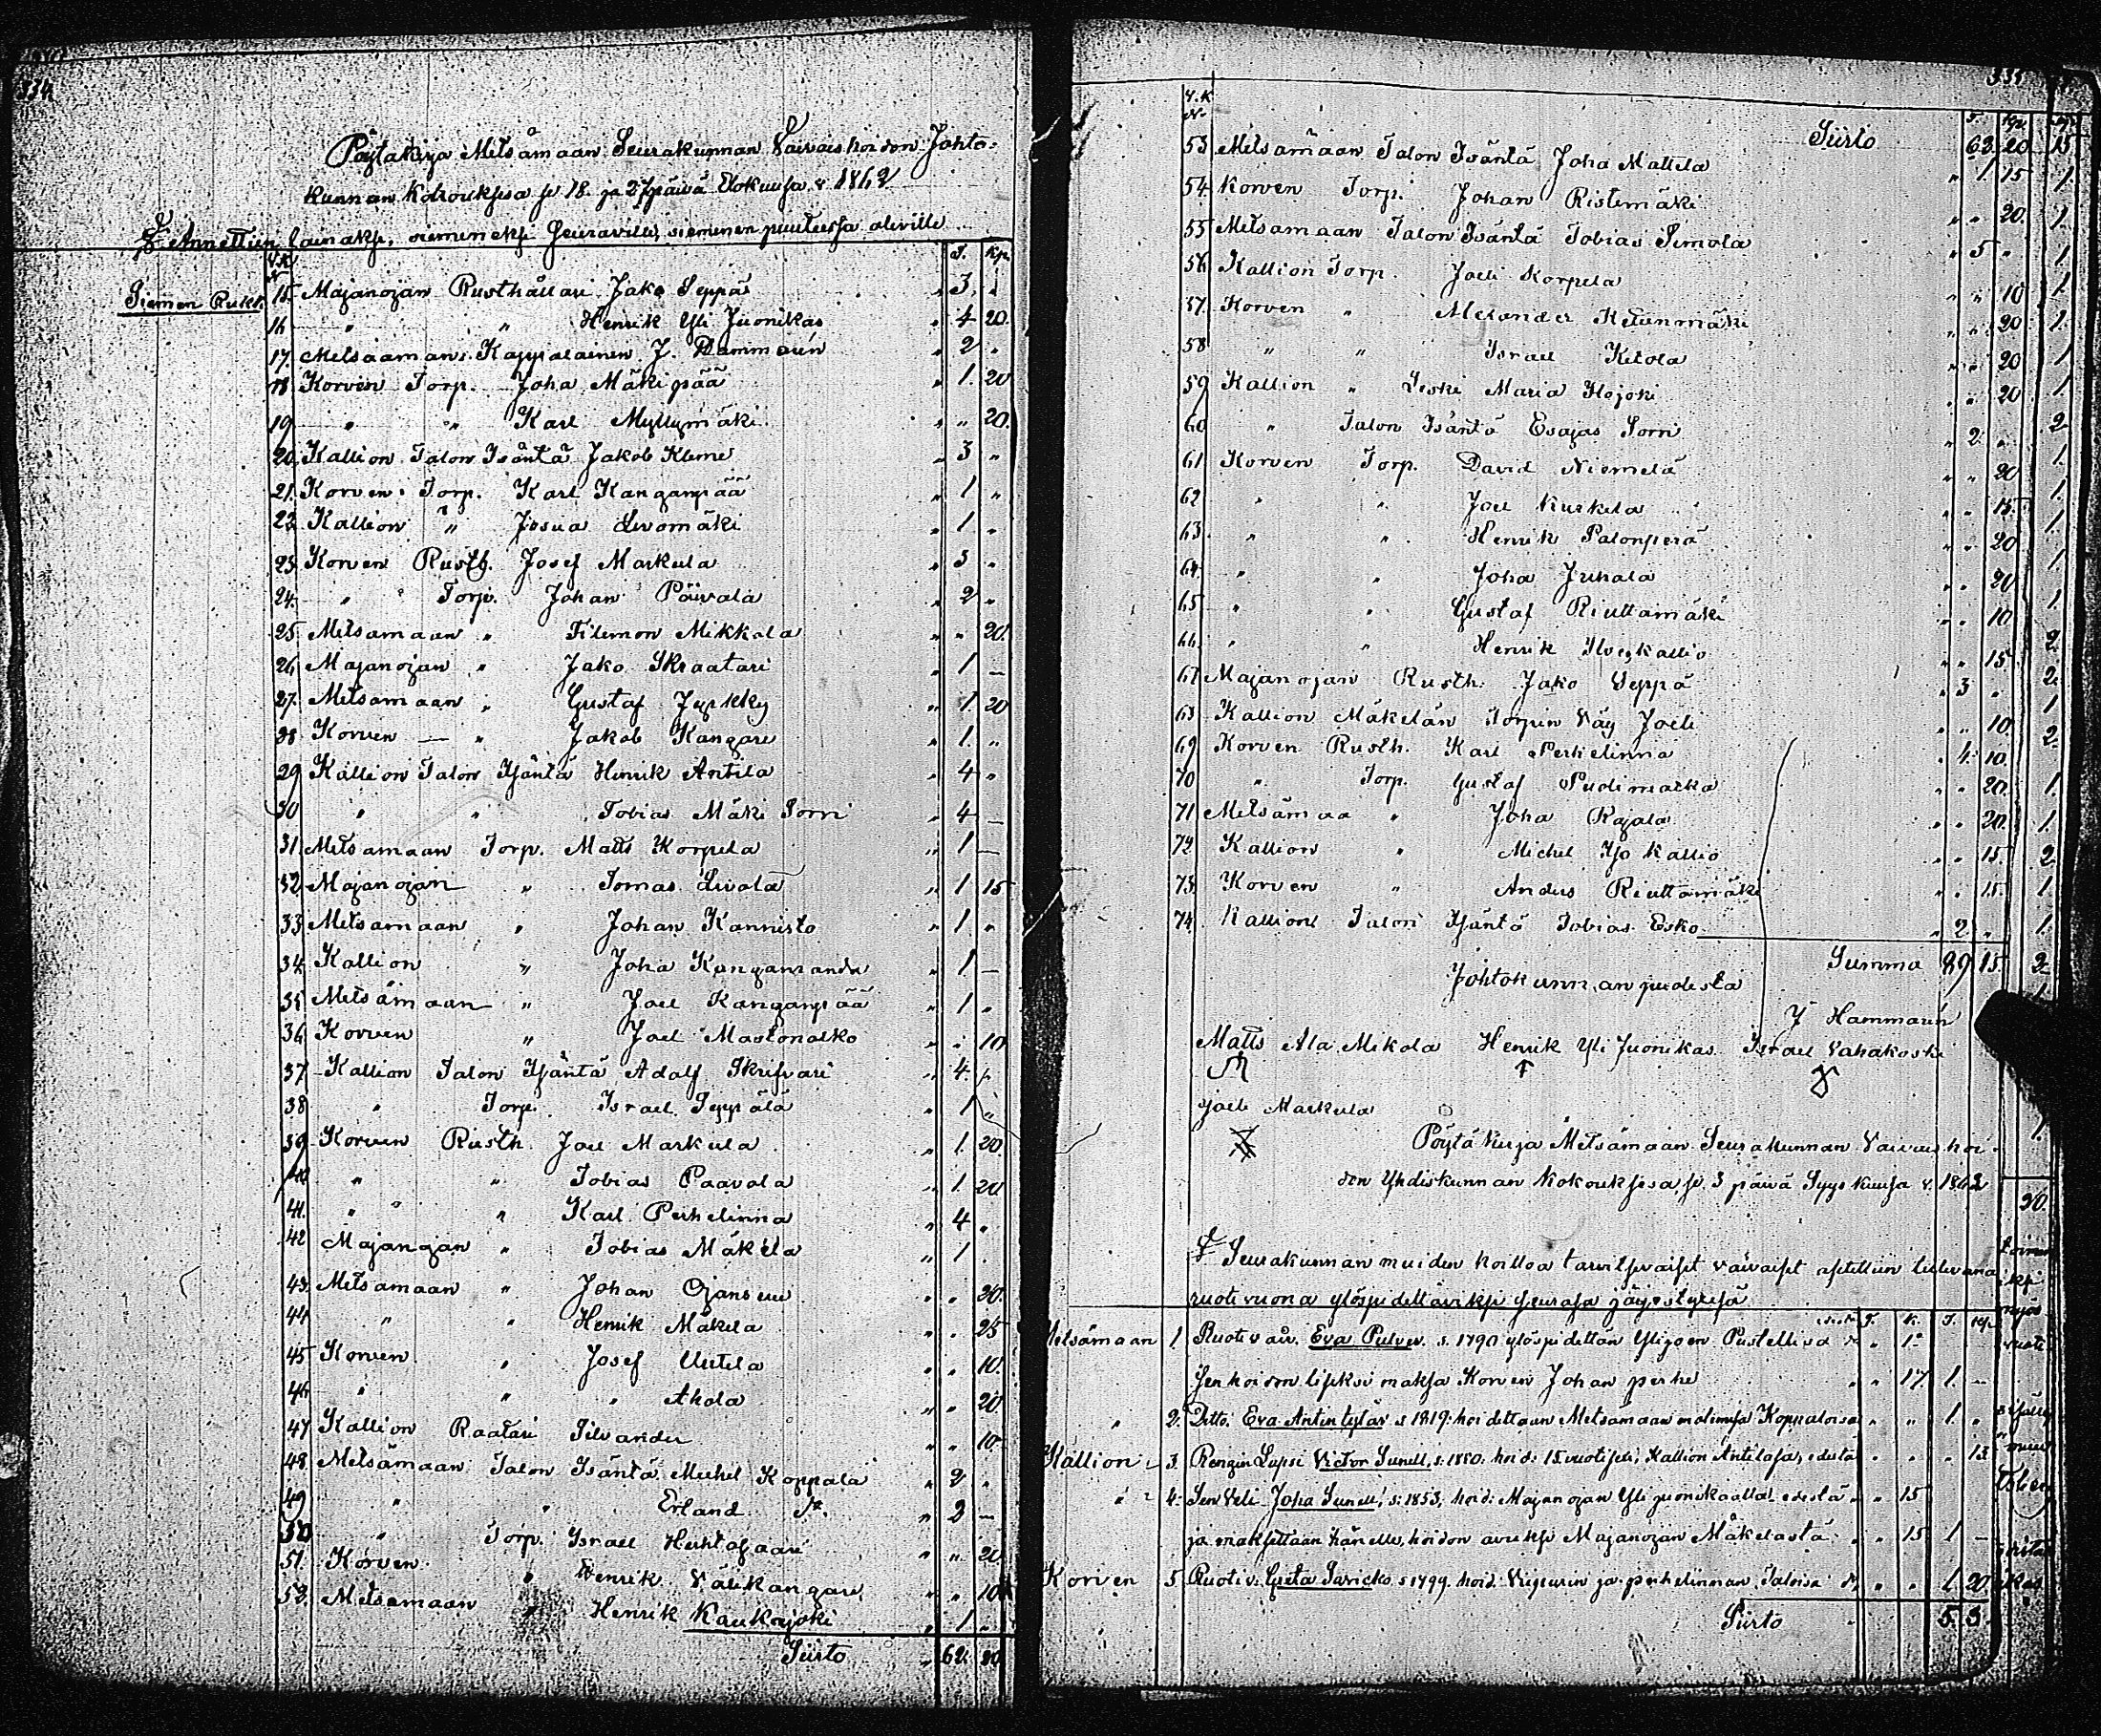 334
Pöytäkirja Metsämaan Seurakunnan Vaivaishoidon Johto-
kunnan Kokouksesa se 18. ja 27 päivä Elokuusa v. 1862
§ Annettiin lainaksi, siemeneksi seuraville, siemenen puuteessa oleville
V.K. N. T. Kp.
Siemen Rukt. 15. Majanojan Rusthållari Jako Seppä " 3. "
16 " " Henrik Yli Juonikas " 4 20.
17. Metsäamans Kappalainen J. Hammarén " 2 "
18 Korven Torp. Joha Mäkipää " 1. 20
19 " " Karl Myllymäki " " 20.
20. Kallion Talon Isäntä Jakob Kleme " 3 "
21. Korven Torp. Karl Kanganpää " 1 "
22. Kallion " Josua Livomäki " 1 "
23. Korven Rusth. Josef Markula " 3 "
24. " Torp. Johan Päivälä " 2 "
25 Metsamaan " Filemon Mikkala " " 20.
26. Majanojan " Jako Skraatari " 1 —
27. Metsamaan " Gustaf Jyrkky " 1 20
28 Korven — " Jakob Kangare " 1. "
29 Kallion Talon Isäntä Henrik Antila " 4 "
30 " " Tobias Mäki Sorri " 4 —
31 Metsamaan Torp. Matts Korpela " 1 —
32 Majanojan " Tomas Livola " 1 15
33 Metsamaan " Johan Kannisto " 1 "
34 Kallion " Joha Kanganranda " 1 —
35 Metsämaan " Joel Kanganpää " 1 "
36 Korven " Joel Mastonalko " " 10
37 Kallion Talon Isäntä Adolf Skrifvari " 4. "
38 " Torp. Israel Seppälä " 1 "
39 Korven Rusth. Joel Markula " 1. 20
40 " " Tobias Paavola " 1. 20
41. " " Karl Perhelinna " 4 "
42 Majanojan " Tobias Mäkela " 1
43. Metsamaan " Johan Ojansuu " " 20.
44 " " Henrik Mäkela " " 25
45 Korven " Josef Uutela " " 10.
46 " " " Ahola " " 20
47 Kallion Raatari Silvander " " 10
48. Metsämaan Talon Isäntä Mickel Koppala " 2 "
49 " " Erland " 2 —
50 " Torp. Israel Huhtasaari " " 20
51. Korven " Henrik Välikangare " " 10
52. Metsamaan " Henrik Kaukajoki " 1 "
Siirto " 62. 20
335
V.K. N. T. Kp.
Siirto 62 20
53 Metsämaan Talon Isäntä Joha Mattila " 1 15
54 Korven Torp. Johan Ristimäki " " 20.
55 Metsamaan Talon Isäntä Tobias Simola " 5 "
56 Kallion Torp. Joeli Korpela " " 10
57. Korven " Alexander Ketunmäki " " 20
58 " " Israel Kitola " " 20
59 Kallion " Leski Maria Hojoki " " 20
60 " Talon Isäntä Esajas Sorri " 2 "
61 Korven Torp. David Niemelä " " 20
62 " " Joel Kurkela " " 15.
63. " " Henrik Palonperä " " 20
64. " " Joha Juhala " " 20
65 " " Gustaf Riuttamäki " " 10
66. " " Henrik Ilveskallio " " 15
67 Majanojan Rusth. Jako Seppä " 3 "
68 Kallion Mäkelän Torpin Väy Joeli " " 10.
69 Korven Rusth. Karl Perhelinna " 4. 10.
70 " Torp. Gustaf Pudimatka " " 20.
71 Metsämaa " Joha Rajala " " 20.
72 Kallion " Michel Iso Kallio " " 15.
73. Korven " Anders Riuttamäki " " 15.
74. Kallion Talon Isäntä Tobias Esko " 2 "
Summa 89 15.
Johtokunnan puolesta
J Hammarén
Matts Ala Mikola Henrik Yli Juonikas Israel Vahakoski
Joeli Markula
Pöytäkirja Metsämaan Seurakunnan Vaivaishoi-
don Yhdiskunnan Kokouksesa, se 3 päivä Syys kuusa v. 1862
§ Seurakunnan muiden hoitoa tarvitsevaiset vaivaiset asetettiin tulevana
ruotivuona ylöspidettäviksi seurasa järjestyksesä
T. K. T. Kp.
Metsämaan 1. Ruotivaiv. Eva Pulver. s. 1790 ylöspidettän Ylijoen Pustellisa
Sen hoidon lisäksi maksa Korven Johan perhe " 17. 1. —
" 2. Ditto. Eva Antintytär s 1819. hoidettaan Metsämaan Koppaloisa " " 1. "
Kallion 3. Rengin Lapsi Victor Sunell, s. 1850. hoid: 15 vuotiseksi, Kallion Antilasa, edestä " " " 13
" 4. Sen Veli Joha Sunell, s. 1853, hoid: Majanojan Yli juonikaalla edestä " 15
ja maksettaan hänelle, hoidon avuksi Majanojan Mäkelastä " 15 1 —
Korven 5. Ruotiv: Greta Saricko s 1799. hoid. ja perhelinnan Taloisa " " 1. 20.
Siirto 5. 3.